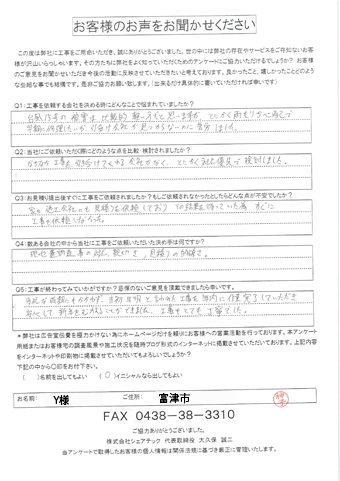 お客様のお声をお聞かせください
この度は弊社に工事をご用命いただき、誠にありがとうございました。世の中には弊社の存在やサービスをご存知ないお客
様が沢山いらっしゃいます。その方たちに弊社をよく知っていただくためのアンケートにご協力いただけるでしょうか? お客様
のご意見をお聞かせいただき今後の活動に反映させていただきたいと考えております。良かったこと、嬉しかったことどのよう
な些細な事でも結構です。是非ご協力お願い致します。(出来るだけ具体的に書いていただければ幸いです)
Q1:工事を依頼する会社を決める時にどんなことで悩まれていましたか?
台風15号の被害は比較的軽い方だと思いますが、とにかく雨もりがへ心で
早期に修理したいが引受け会社が見つからないのに苦労しました。
Q2:当社にご依頼いただく際にどのような点を比較・検討されましたか?
なかなか工事を引受けてくれる会社がなく、とにかく対応優先で検討しました。
Q3:お見積り提出後すぐに工事をご依頼されましたか?もしご依頼されなかったとしたらどんな点が不安でしたか?
他の施工会社にも見積りを依頼しており その結果を待っていた為 すぐに
工事を依頼しなかった。
Q4:数ある会社の中から当社に工事をご依頼いただいた決め手は何ですか?
現地調査時の対応、親切さ、見積りの明確さ。
Q5:工事が終わってみていかがですか?忌憚のないご意見を頂戴できましたら幸いです。
多忙な時期にもかかわらず、当初年明と言われた工事を年内に作業完了していただき
安心して新年をむかえることができました。工事もとても丁寧でした。
*弊社は広告宣伝費を極力かけない為にホームページだけを頼りにお客様への営業活動を行っております。本アンケート
用紙またはお客様宅の調査風景や施工状況を随時ブログ形式のインターネットに掲載させていただいております。上記内容
をインターネットや印刷物に掲載させていただいてもよろしいでしょうか?
下記の中から〇印をお付下さい。
( )名前を出してもよい (〇)イニシャルなら出してもよい
お名前: Y様 ご住所: 富津市
FAX 0438-38-3310
ご協力ありがとうございました。
株式会社シェアテック 代表取締役 大久保 誠二
当アンケートで取得したお客様の個人情報は関係法規に基づき厳正に管理いたします。